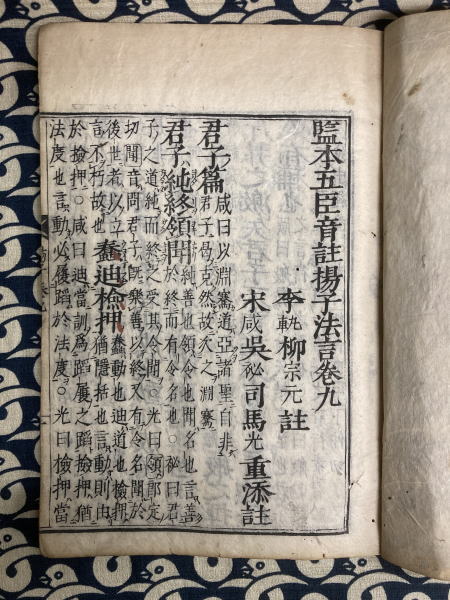 監本五臣音註揚子法言卷九
李軌柳宗元註
宋咸吳祕司馬光重添註
君子篇咸曰以淵騫道亞諸聖自非
君子毋克然故次之淵騫
君子純終領聞純善也領令也聞名也言善
於終而有令名也○祕曰君
子之道純而終之受其令聞○光曰領郎定
切聞音問君子既樂善以終又有令名聞於
後世者以立蠢迪檢押蠢動也迪道也檢押
言不朽故也猶隱括也言動則由
於檢押○咸曰迪當訓爲蹈履之蹈檢押猶
法度也言動必履蹈於法度○光曰檢押當